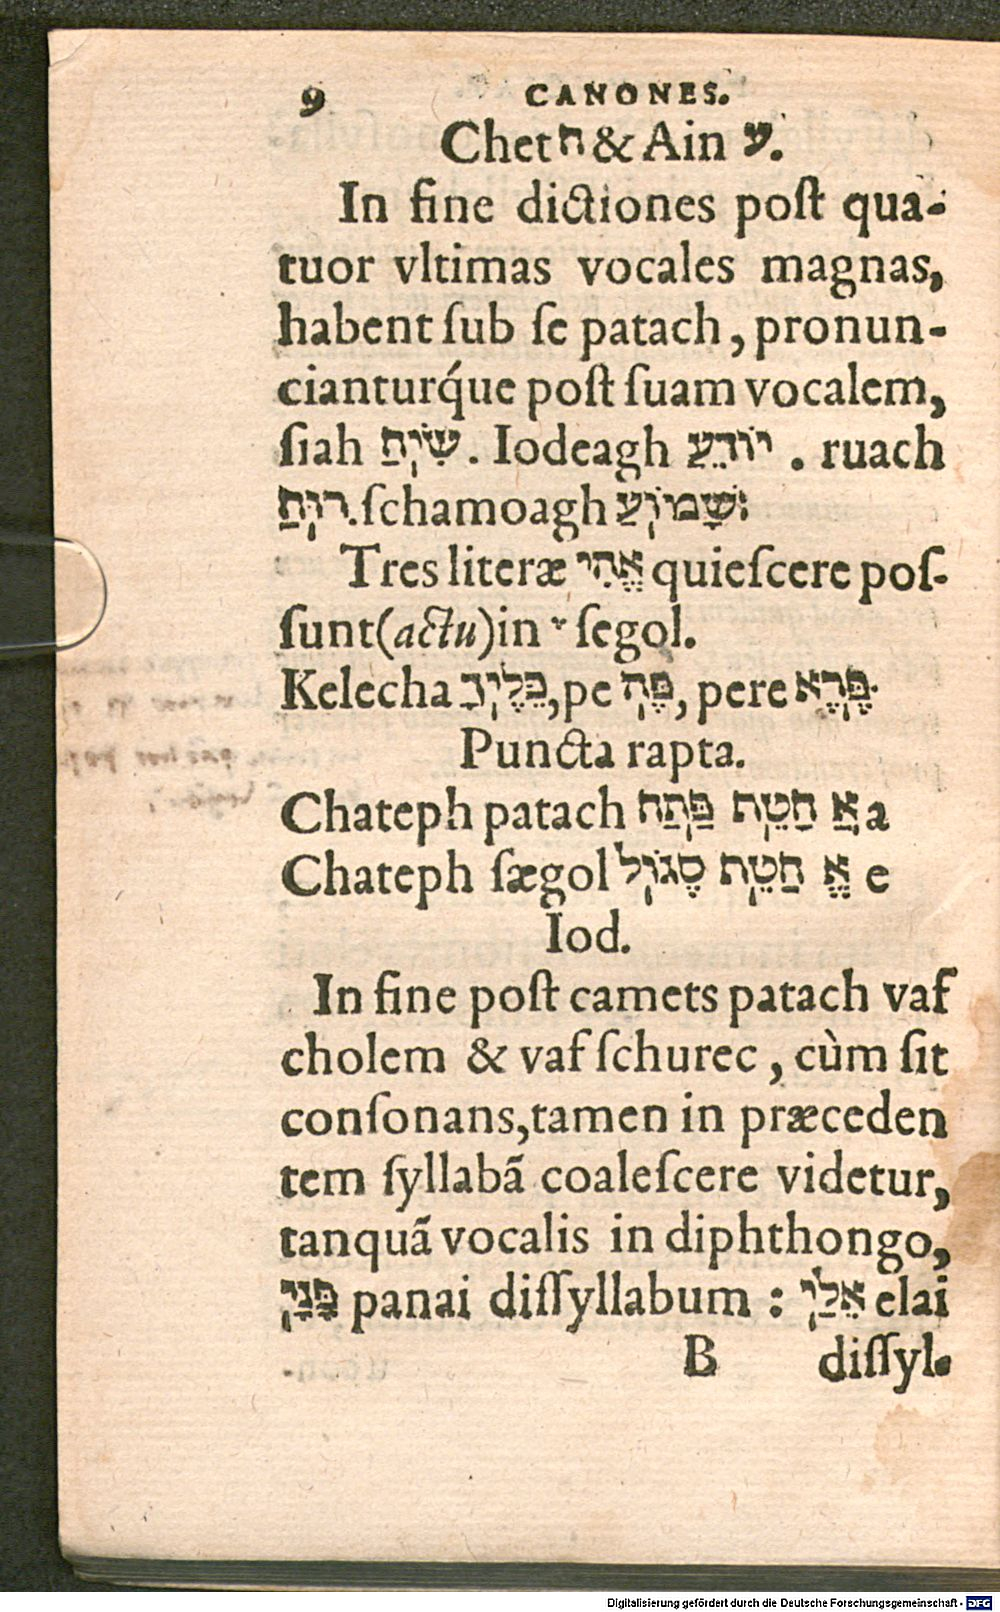 9 CANONES.
Chet ח & Ain ע.
In fine dictiones poſt qua-
tuor vltimas vocales magnas,
habent ſub ſe patach, pronun-
cianturq́ue poſt ſuam vocalem,
ſiah שִׂיְחַ. Iodeagh יוֹדֵעַ. ruach
רוּחַ. ſchamoagh שָׁמוֹעַ
Tres literæ אֱהִי quieſcere poſ-
ſunt (actu) in ֶ ſegol.
Kelecha כֵּלֶיְךָ, pe פֶּהְ, pere פֶּרֶאְ
Puncta rapta.
Chateph patach חֲטֵף פַּתַח אֲ a
Chateph ſægol חֲטֵף סֶגוֹל אֱ e
Iod.
In fine poſt camets patach vaf
cholem & vaf ſchurec, cùm ſit
conſonans, tamen in præceden
tem ſyllabã coaleſcere videtur,
tanquã vocalis in diphthongo,
פָּנַיְ panai diſſyllabum : אֵלַיְ elai
B diſſyl-
Digitalisierung gefördert durch die Deutsche Forschungsgemeinschaft - DFG